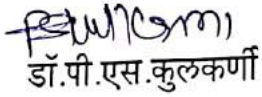 डॉ.पी.एस.कुलकर्णी